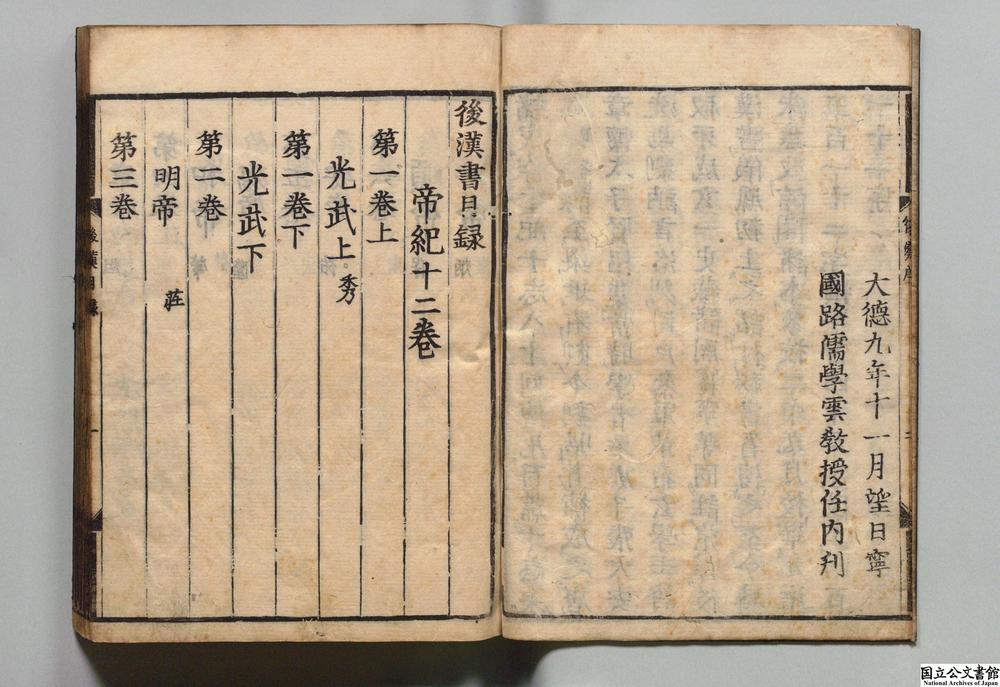 大德九年十一月望日寧
國路儒學雲教授任內刋
後漢書目録
帝紀十二卷
第一卷上
光武上 秀
第一卷下
光武下
第二卷
明帝 莊
第三卷
後漢目録
一
国立公文書館
National Archives of Japan